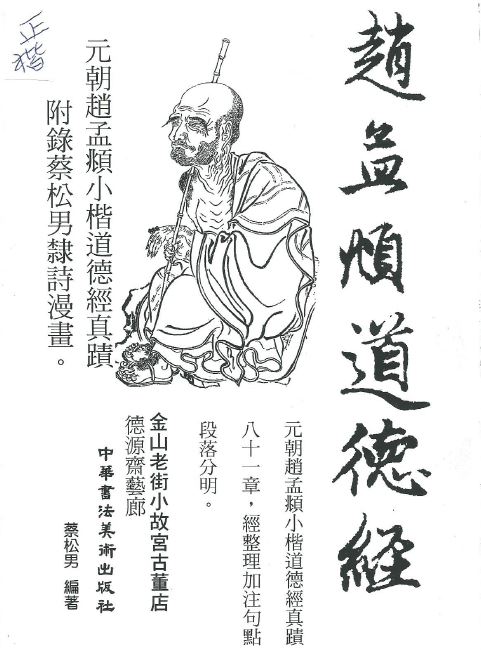 趙孟頫道德經
元朝趙孟頫小楷道德經真蹟
八十一章，經整理加注句點
段落分明。
金山老街小故宮古董店
德源齋藝廊
中華書法美術出版社
蔡松男 編著
元朝趙孟頫小楷道德經真蹟
附錄蔡松男隸詩漫畫。
正楷